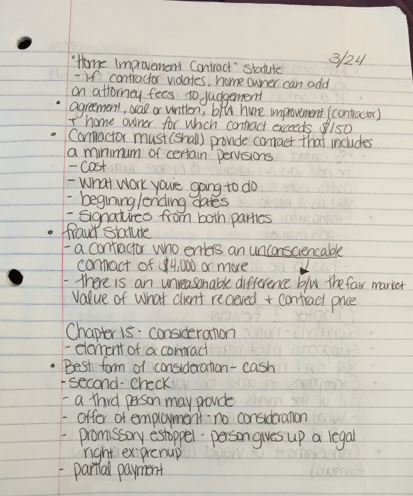 3/24
"Home Improvement Contract" Statute
- if contractor violates, home owner can add
on attorney fees to judgement
• agreement, oral or written, b/w home improvement (contractor)
+ home owner for which contract exceeds $150
• Contractor must (shall) provide contract that includes
a minimum of certain pervisions
- cost
- what work youre going to do
- begining/ending dates
- signatures from both parties
• fraud statute
- a contractor who enters an unconsciencable
contract of $4,000 or more
- there is an unreasonable difference b/w the fair market
value of what client recieved + contract price
Chapter 15 - consideration
- element of a contract
• Best form of consideration - cash
- second - check
- a third person may provide
- offer of employment - no consideration
- promissory estoppel - person gives up a legal
right ex: prenup
- partial payment